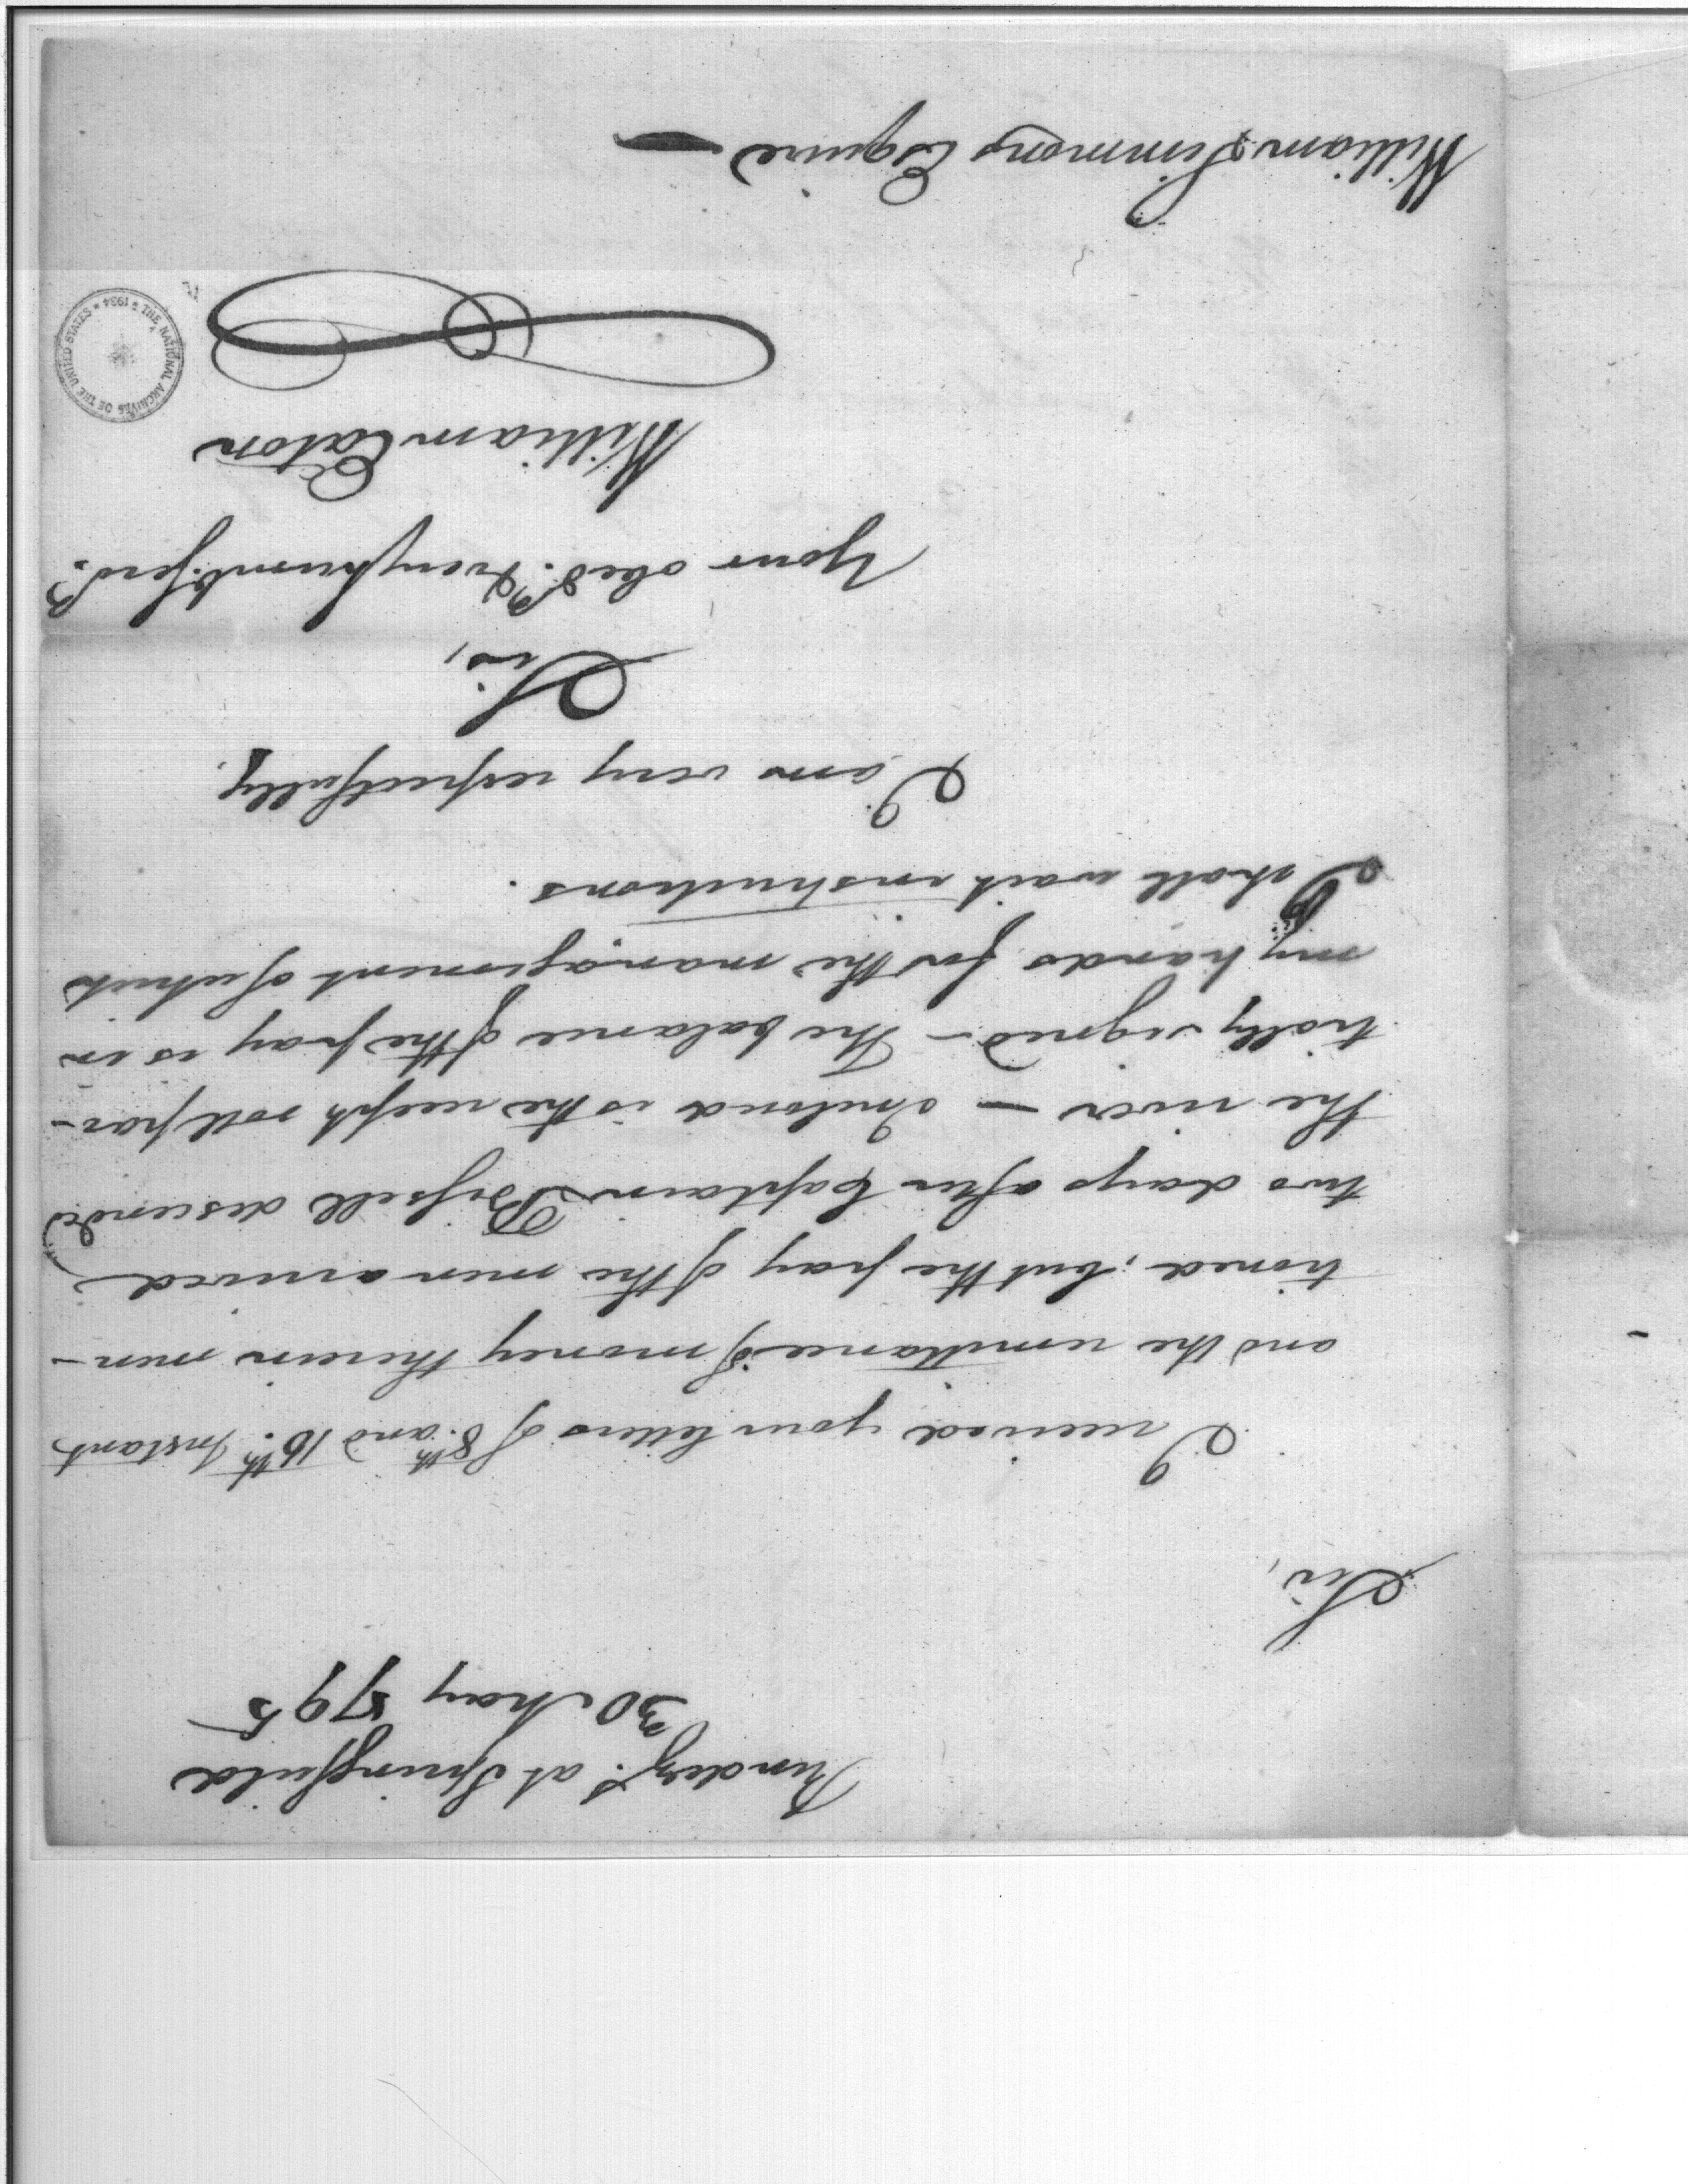 Rendez.s at Springfield
30 May 1795
Sir,
I received your letters of 8.th and 16.th Instant
and the remittance of money therein men-
tioned; but the pay of the men arrived
two days after Captain Bissell descended
the river — Inclosed is the receipt roll par-
tially signed — The balance of the pay is in
my hands for the management of which
I shall wait instructions.
I am very respectfully,
Sir,
Your obed.t & very humb. serv.t
William Eaton
William Simmons Esquire —
THE NATIONAL ARCHIVES OF THE UNITED STATES * 1934 *